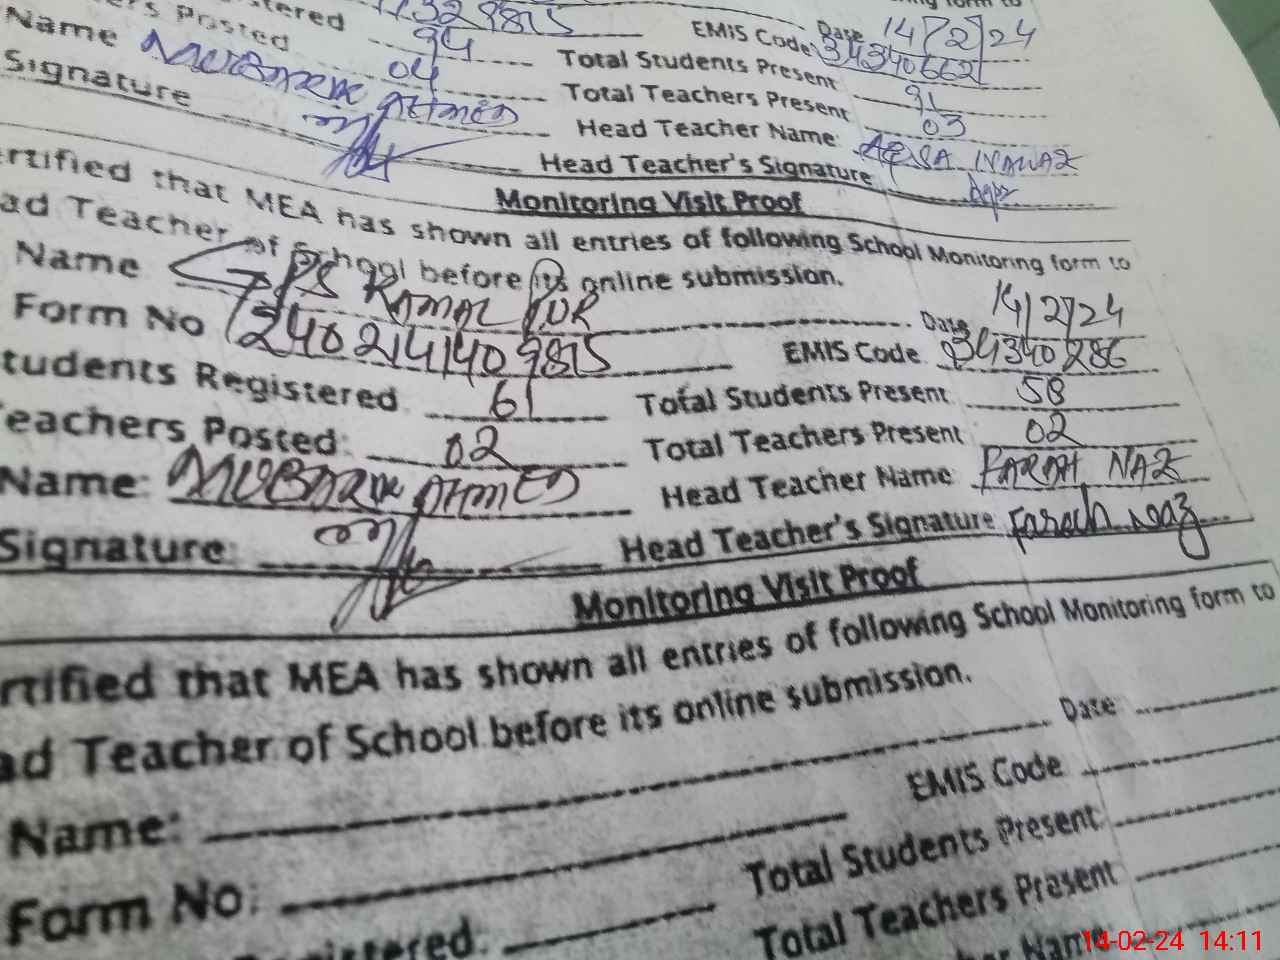 EMIS Code 34340662 Date 14/2/24
Posted 04 Total Students Present 91
Name MUBARK AHMED Total Teachers Present 03
Signature Head Teacher Name: AQSA NAWAZ
Head Teacher's Signature
Monitoring Visit Proof
rtified that MEA has shown all entries of following School Monitoring form to
ad Teacher of School before its online submission.
Name GPS KAMAL PUR Date 14/2/24
Form No 2402141409815 EMIS Code 34340286
tudents Registered 61 Total Students Present 58
eachers Posted: 02 Total Teachers Present 02
Name: MUBARK AHMED Head Teacher Name FARAH NAZ
Signature: Head Teacher's Signature Farah Naz
Monitoring Visit Proof
rtified that MEA has shown all entries of following School Monitoring form to
ad Teacher of School before its online submission.
Name: Date
Form No: EMIS Code
gistered: Total Students Present
Total Teachers Present
her Name
14-02-24 14:11